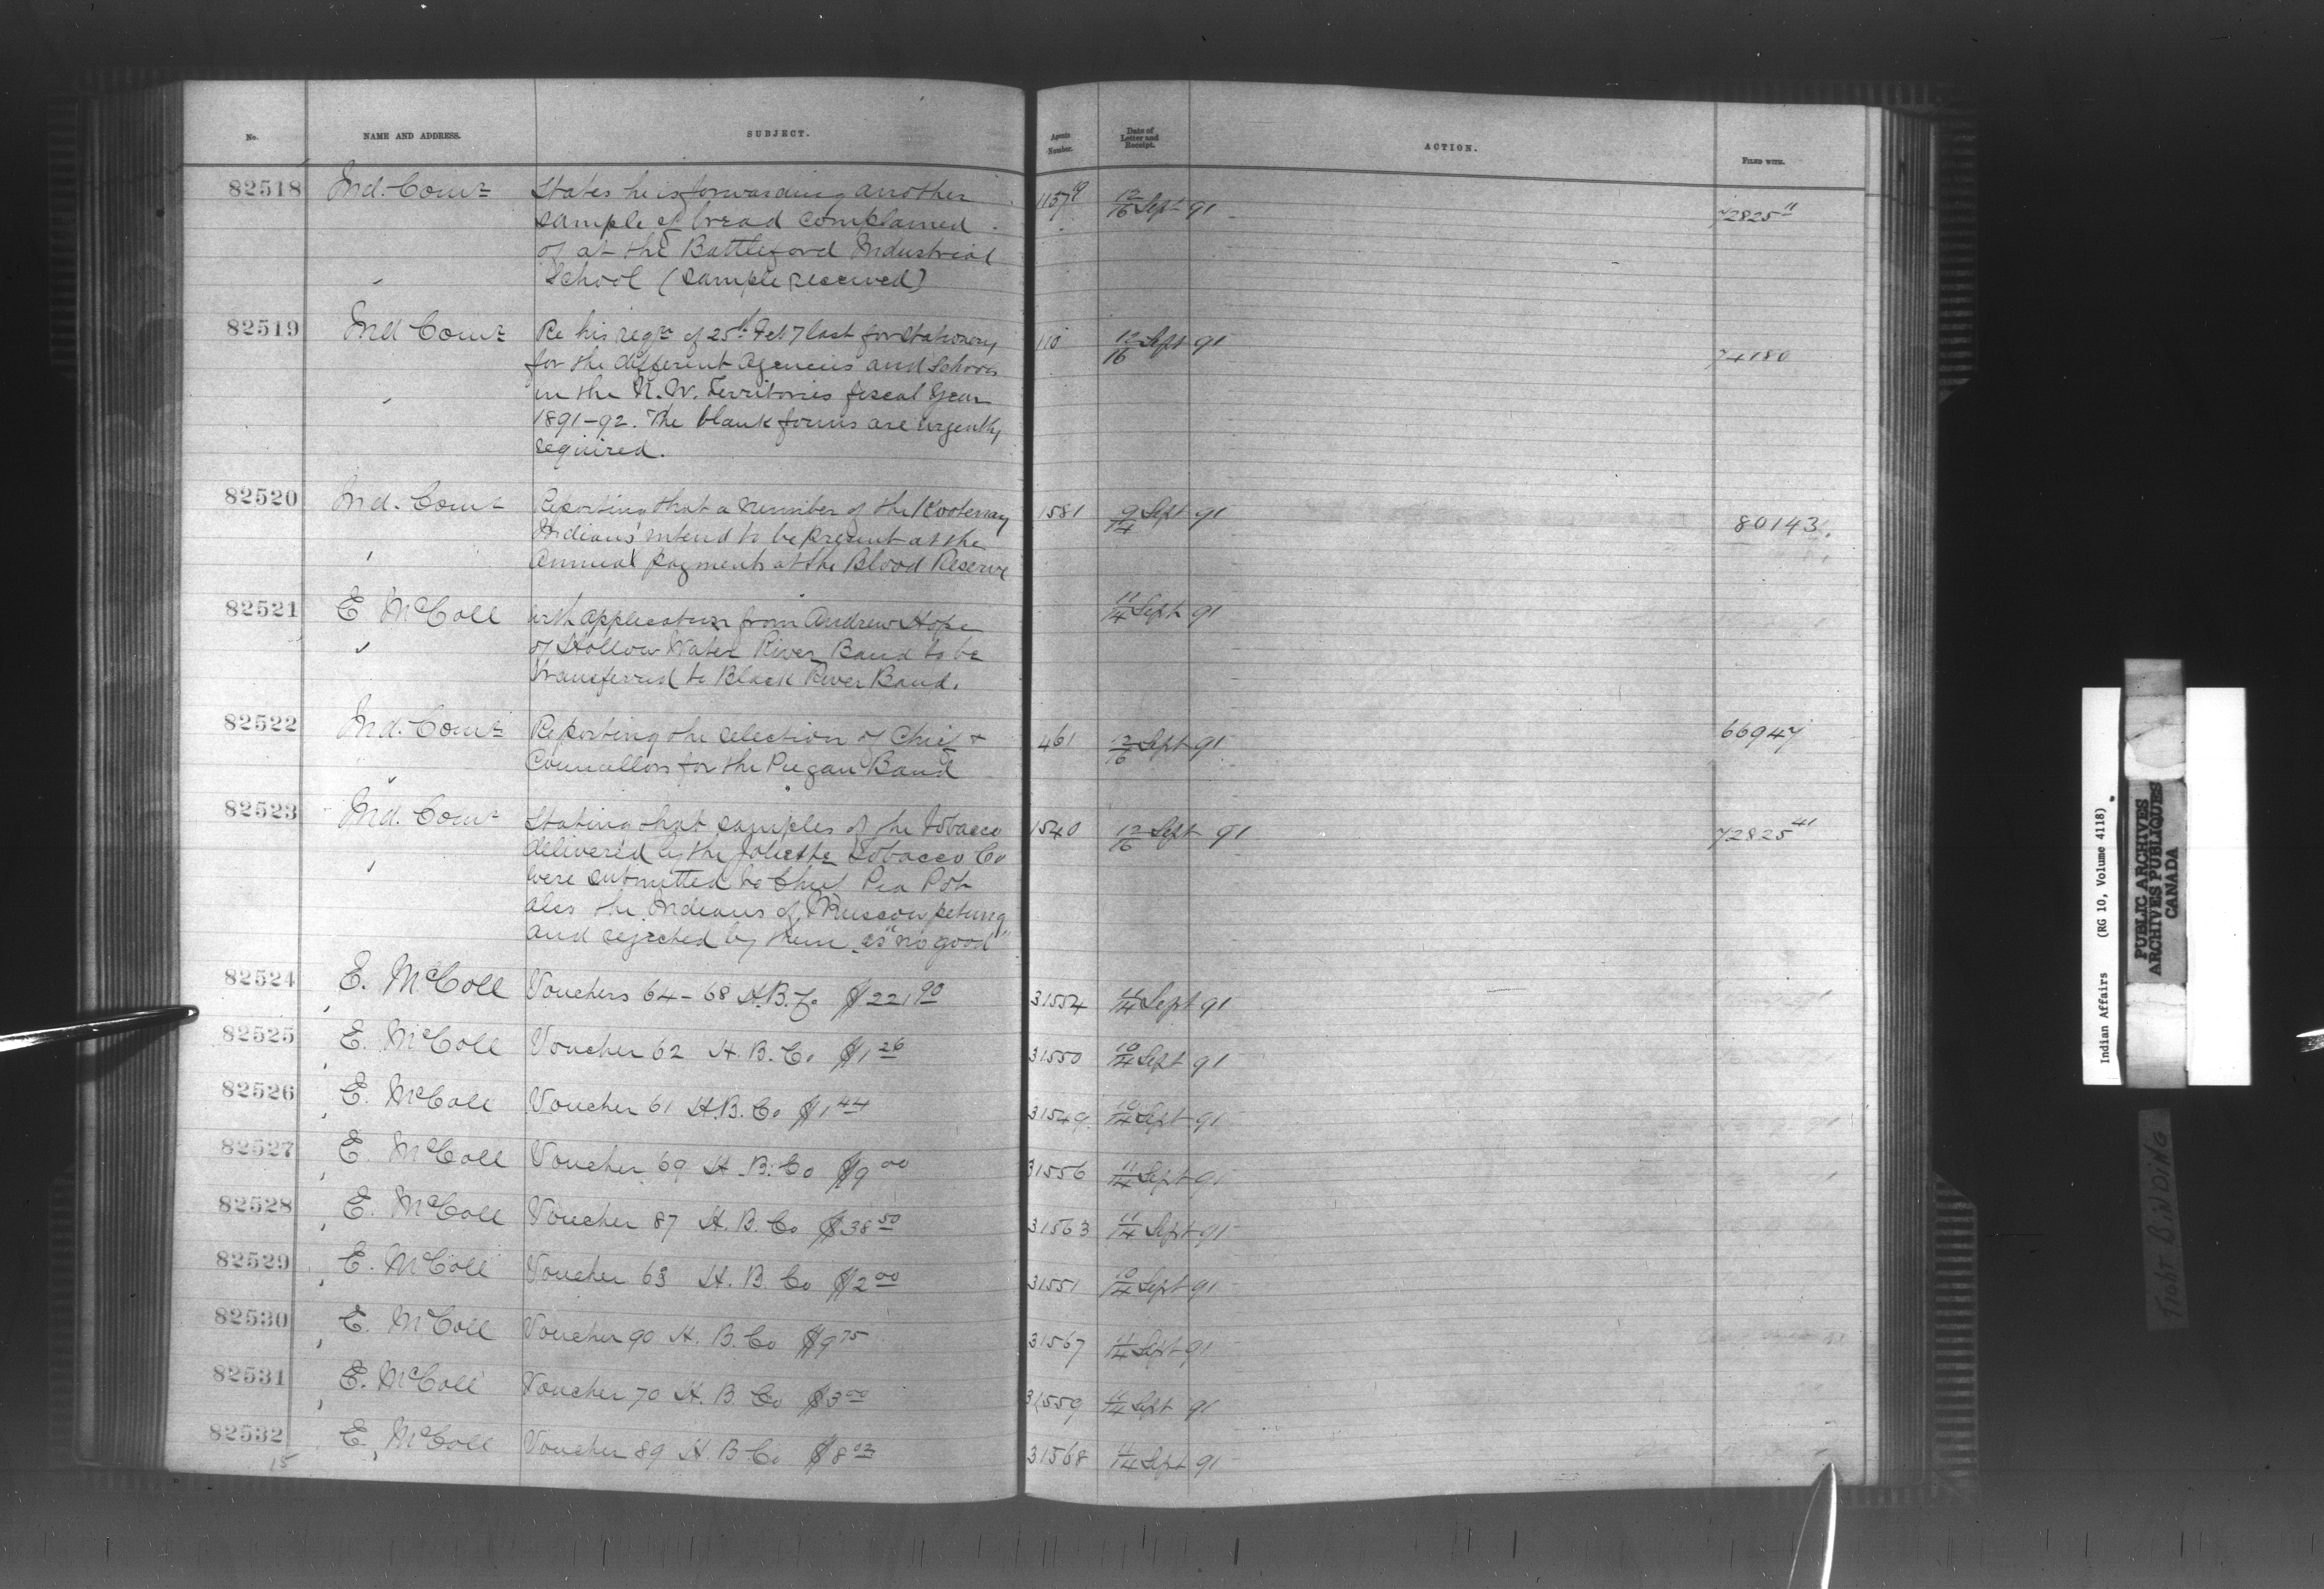 No. NAME AND ADDRESS. SUBJECT. Agents Number. Date of Letter and Receipt. ACTION. FILED WITH.
82518 Ind. Comr States he is forwarding another 1157 12/16 Sept 91 72825 11
sample of bread complained
of at the Battleford Industrial
School (sample received)
82519 Ind Comr Re his reqn of 25th Feby last for Stationery 110 12/16 Sept 91 74180
for the different agencies and schools
in the N. W. Territories fiscal Year
1891-92. The blank forms are urgently
required.
82520 Ind. Comr Reporting that a number of the Kootenay 1581 9/14 Sept 91 80143
Indians intend to be present at the
Annual payments at the Blood Reserve
82521 E McColl with application from Andrew Hope 11/14 Sept 91
of Hollow Water River Band to be
transferred to Black River Band.
82522 Ind. Comr Reporting the selection of Chief & 461 12/16 Sept 91 66947
Councillors for the Piegan Band
82523 Ind. Comr Stating that samples of the Tobacco 1540 12/16 Sept 91 72825 41
delivered by the Joliette Tobacco Co
were submitted to Chief Pia Pot
also the Indians of Muscowpetung
and rejected by them as "no good"
82524 E. McColl Vouchers 64-68 H.B.Co $221 90 31554 11/14 Sept 91
82525 E. McColl Voucher 62 H. B. Co $1 26 31550 10/14 Sept 91
82526 E. McColl Voucher 61 H.B. Co $1 44 31549 10/14 Sept 91
82527 E. McColl Voucher 69 H. B. Co $9 00 31556 11/14 Sept 91
82528 E. McColl Voucher 87 H. B. Co $38 50 31563 11/14 Sept 91
82529 E. McColl Voucher 63 H. B. Co $2 00 31551 10/14 Sept 91
82530 E. McColl Voucher 90 H. B. Co $9 75 31567 11/14 Sept 91
82531 E. McColl Voucher 70 H. B. Co $3 00 31559 11/14 Sept 91
82532 E. McColl Voucher 89 H. B. Co $8 02 31568 11/14 Sept 91
15
Indian Affairs (RG 10, Volume 4118)
PUBLIC ARCHIVES
ARCHIVES PUBLIQUES
CANADA
TIGHT BINDING